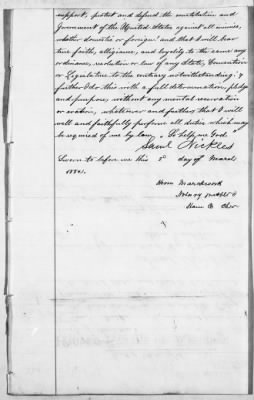 support, protect and defend the constitution and
Government of the United States against all enemies,
whether domestic or foreign and that I will bear
true faith, allegiance, and loyalty to the same any
ordinance, resolution or law of any State, Convention
or Legislature to the contrary notwithstanding; &
further I do this with a full determination, pledge
and purpose, without any mental reservation
or evasion, whatever and further that I will
well and faithfully perform all duties which may
be required of me by law, So help me God.
Saml Nickles
Sworn to before me this 5" day of March
Notary public